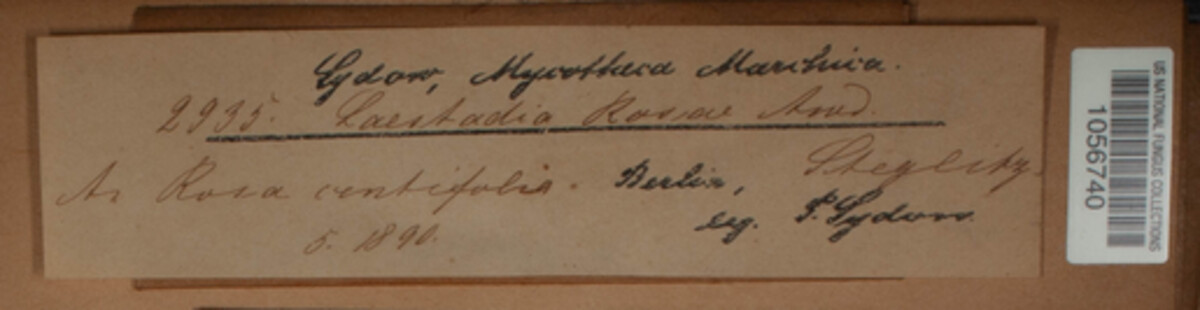 Sydow, Mycotheca Marchica.
2935. Laestadia Rosae Awd.
An Rosa centifolia. Berlin, Steglitz.
5. 1890. leg. P. Sydow.
US NATIONAL FUNGUS COLLECTIONS
1056740